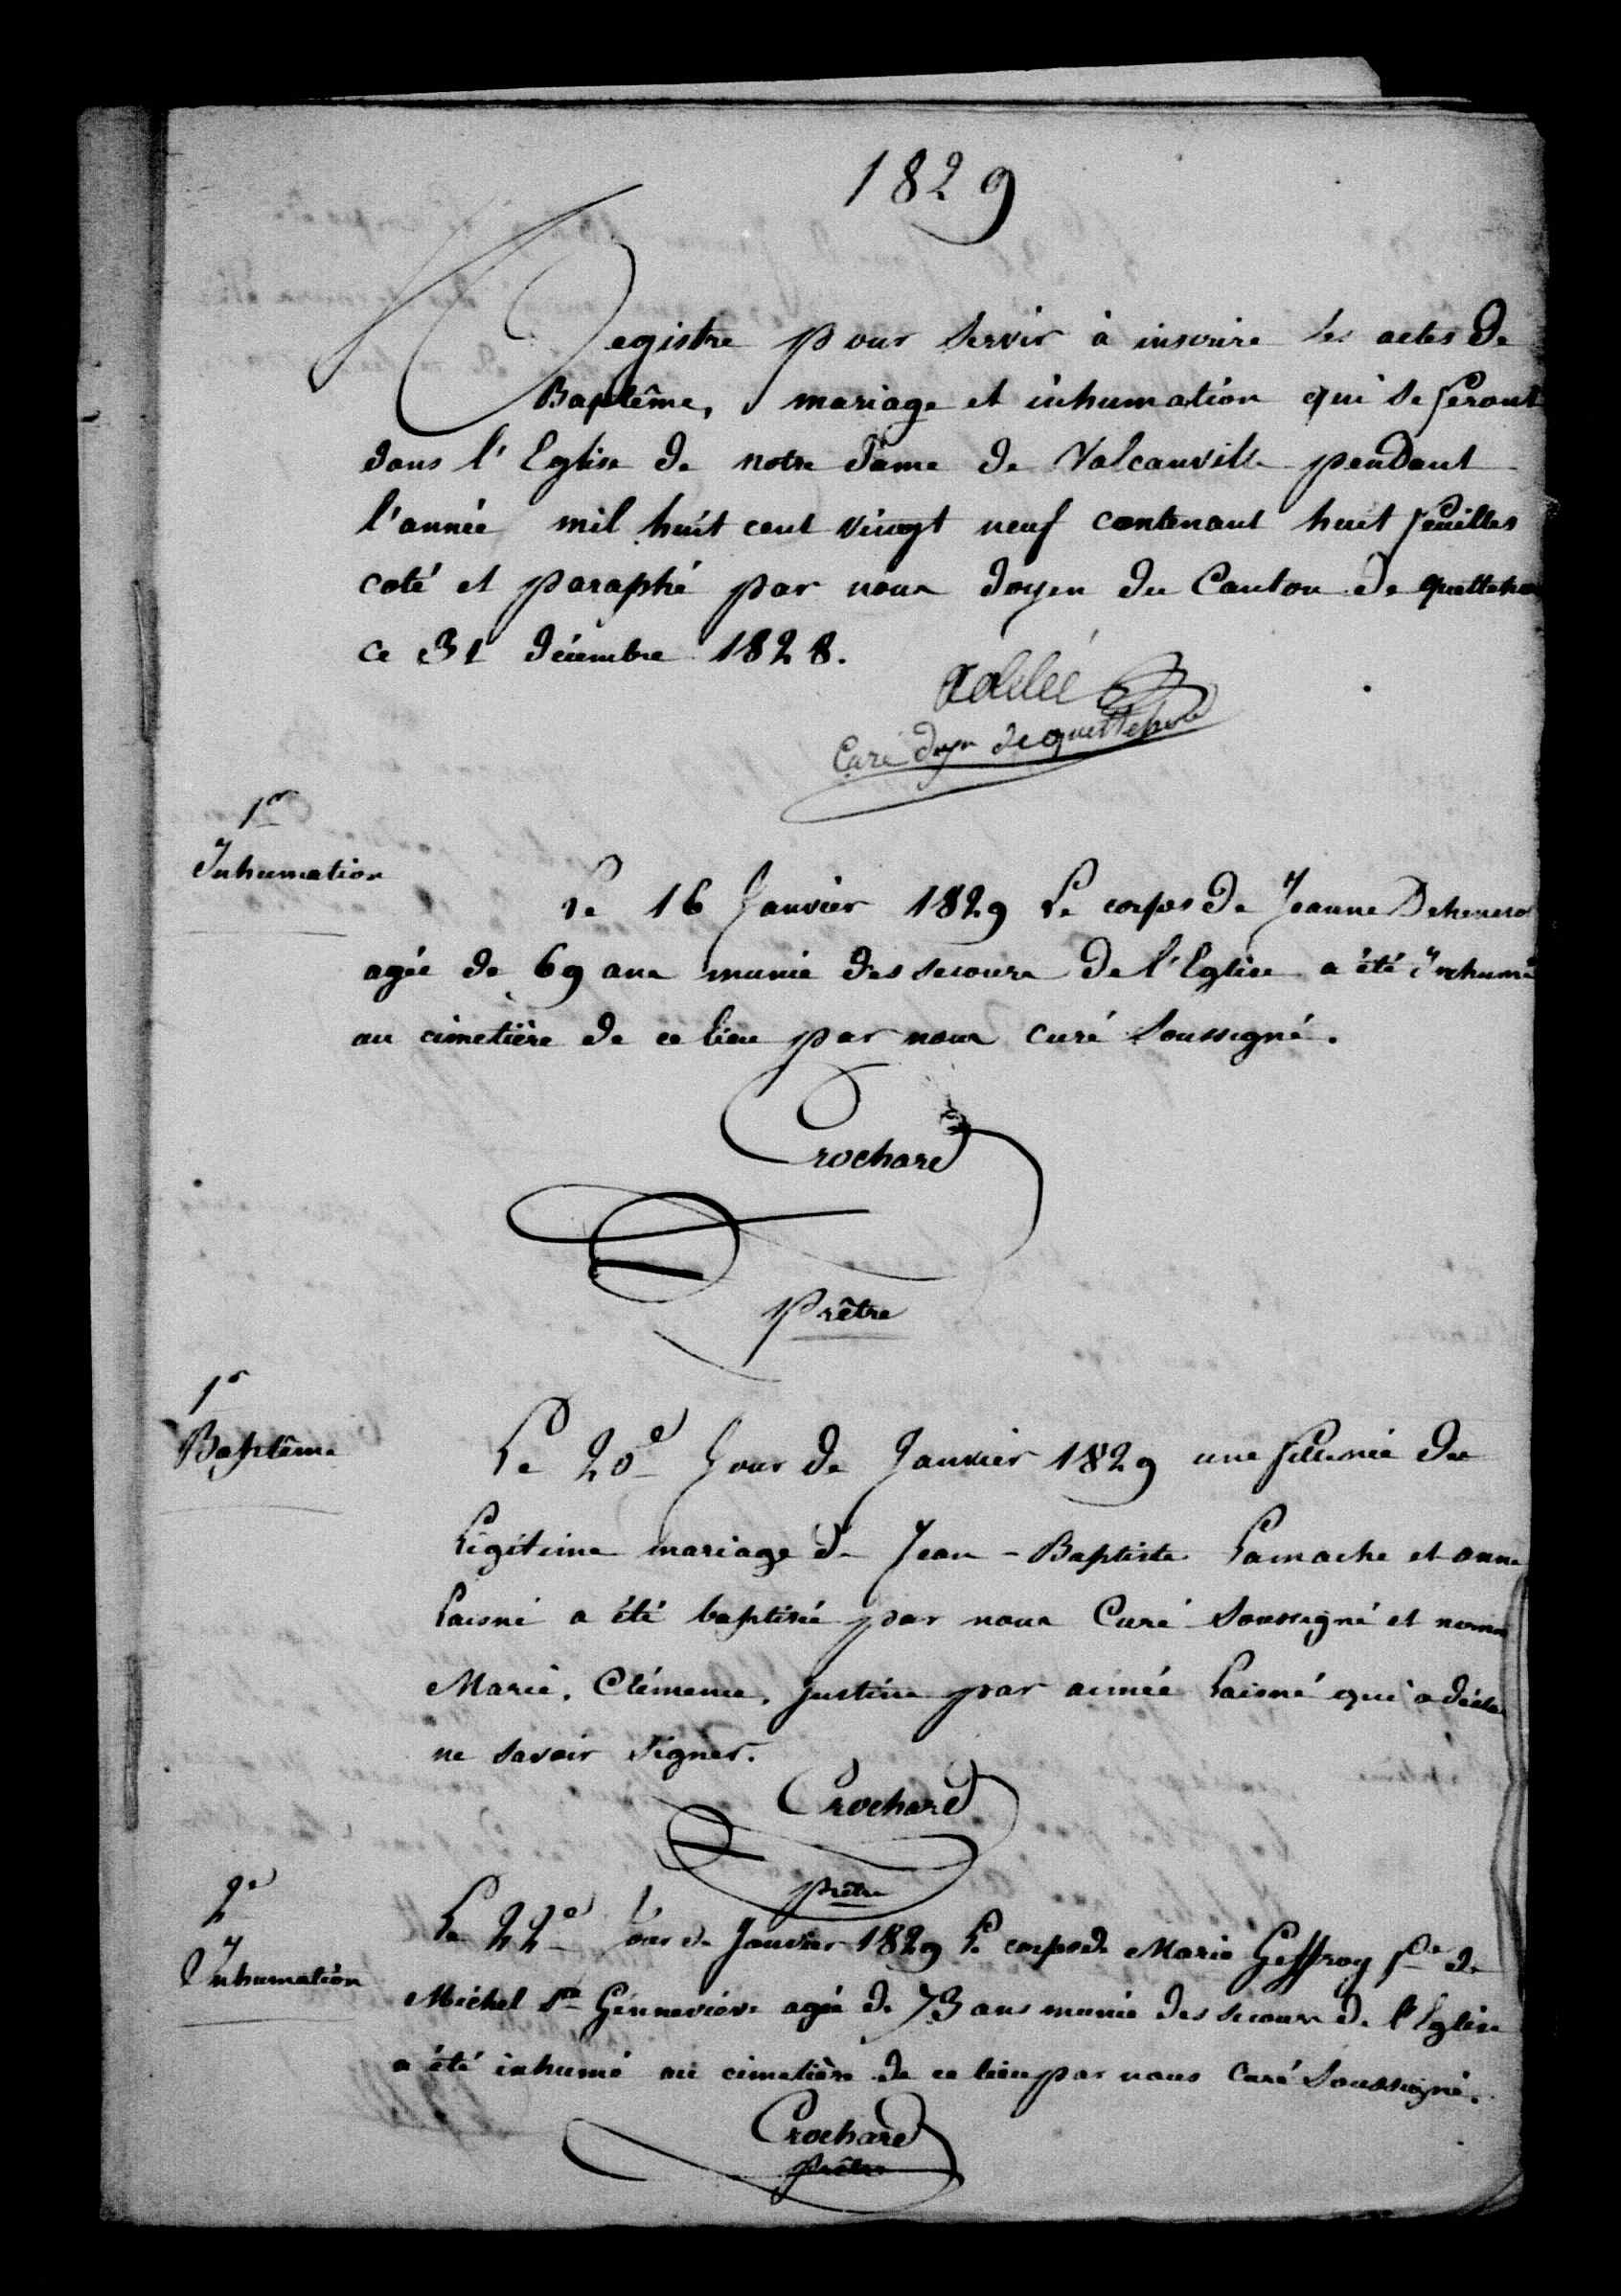 1829
Registre pour servir à inscrire les actes de
Baptême, mariage et inhumation qui se feront
dans l'Eglise de notre dame de Valcanville pendant
l'année mil huit cent vingt neuf contenant huit feuilles
coté et paraphé par nous doyen du Canton de quetteho
ce 31 décembre 1828.
Curé doyn de quettehou
1er
Inhumation
Le 16 Janvier 1829 Le corps de Jeanne
agée de 69 ans munie des secours de l'Eglise a été Inhumé
au cimetière de ce lieu par nous curé Soussigné.
Crochard
Prêtre
1r
Baptême
Le 20e Jour de Janvier 1829 une fille née du
Légitime mariage de Jean-Baptiste Lamache et anne
Laisné a été baptisée par nous Curé Soussigné et nomm
Marie, Clémence, Justine par aimée Laisné qui a décla
ne savoir signer.
Crochard
prêtre
2e
Inhumation
Le 22e Jour de Janvier 1829 Le corps de Marie Geffroy fe de
Michel Ste Génneviève agée de 73 ans munie des secours de l'Eglise
a été inhumé au cimetière de ce lieu par nous Curé Soussigné.
Crochard
prêtre